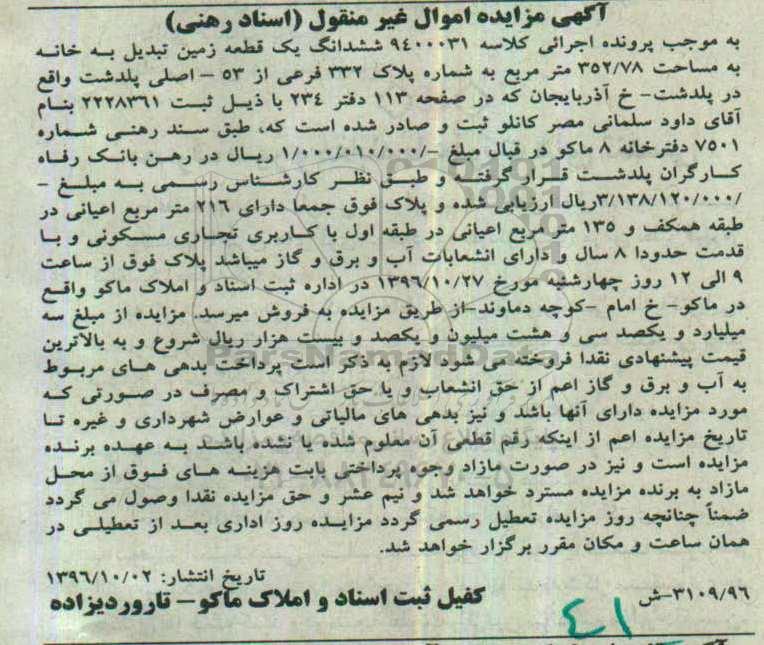 آگهی مزایده اموال غیر منقول (اسناد رهنی)
به موجب پرونده اجرائی کلاسه ۹٤۰۰۰۳۱ ششدانگ یک قطعه زمین تبدیل به خانه
به مساحت ۳٥۲/۷۸ متر مربع به شماره پلاک ۳۳۲ فرعی از ٥۳ – اصلی پلدشت واقع
در پلدشت- خ آذربایجان که در صفحه ۱۱۳ دفتر ۲۳٤ با ذیل ثبت ۲۲۲۸۳٦۱ بنام
آقای داود سلمانی مصر کانلو ثبت و صادر شده است که، طبق سند رهنی شماره
۷٥۰۱ دفترخانه ۸ ماکو در قبال مبلغ -/۱/۰۰۰/۰۱۰/۰۰۰ ریال در رهن بانک رفاه
کارگران پلدشت قرار گرفته و طبق نظر کارشناس رسمی به مبلغ -
/۳/۱۳۸/۱۲۰/۰۰۰ریال ارزیابی شده و پلاک فوق جمعا دارای ۲۱٦ متر مربع اعیانی در
طبقه همکف و ۱۳٥ متر مربع اعیانی در طبقه اول با کاربری تجاری مسکونی و با
قدمت حدودا ۸ سال و دارای انشعابات آب و برق و گاز میباشد پلاک فوق از ساعت
۹ الی ۱۲ روز چهارشنبه مورخ ۱۳۹٦/۱۰/۲۷ در اداره ثبت اسناد و املاک ماکو واقع
در ماکو- خ امام -کوچه دماوند-از طریق مزایده به فروش میرسد. مزایده از مبلغ سه
میلیارد و یکصد سی و هشت میلیون و یکصد و بیست هزار ریال شروع و به بالاترین
قیمت پیشنهادی نقدا فروخته می شود لازم به ذکر است پرداخت بدهی های مربوط
به آب و برق و گاز اعم از حق انشعاب و یا حق اشتراک و مصرف در صورتی که
مورد مزایده دارای آنها باشد و نیز بدهی های مالیاتی و عوارض شهرداری و غیره تا
تاریخ مزایده اعم از اینکه رقم قطعی آن معلوم شده یا نشده باشد به عهده برنده
مزایده است و نیز در صورت مازاد وجوه پرداختی بابت هزینه های فوق از محل
مازاد به برنده مزایده مسترد خواهد شد و نیم عشر و حق مزایده نقدا وصول می گردد
ضمناً چنانچه روز مزایده تعطیل رسمی گردد مزایده روز اداری بعد از تعطیلی در
همان ساعت و مکان مقرر برگزار خواهد شد.
تاریخ انتشار: ۱۳۹٦/۱۰/۰۲
۳۱۰۹/۹٦-ش
کفیل ثبت اسناد و املاک ماکو – تاروردیزاده
٤۱
ParsNamadData